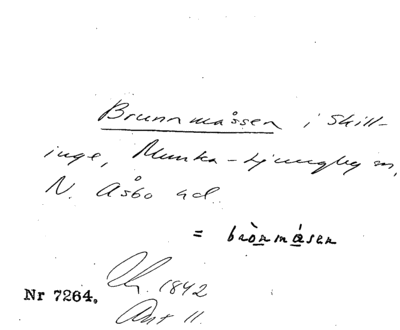 Brunnmåssen i Skill-
inge, Munka-Ljungby sn,
N. Åsbo hd.
= brònmåsen
Nr 7264. 1842
Ant 11.